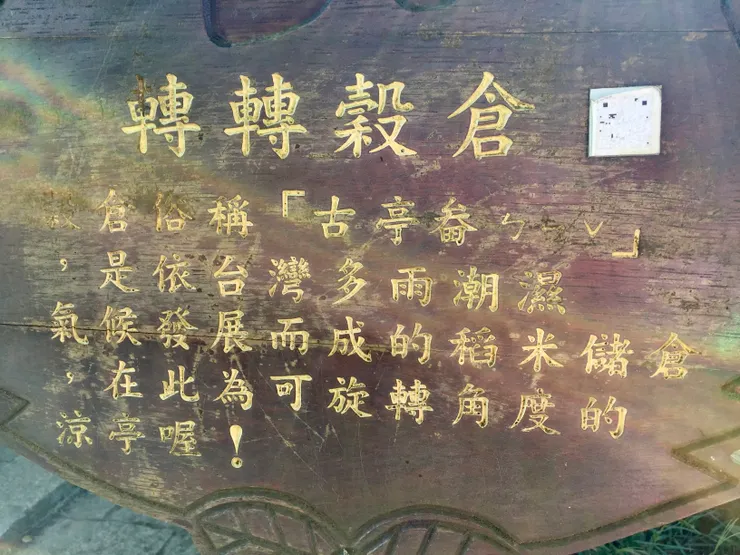 轉轉穀倉
穀倉俗稱「古亭畚ㄅㄣˇ」
，是依台灣多雨潮濕
氣候發展而成的稻米儲倉
，在此為可旋轉角度的
涼亭喔！